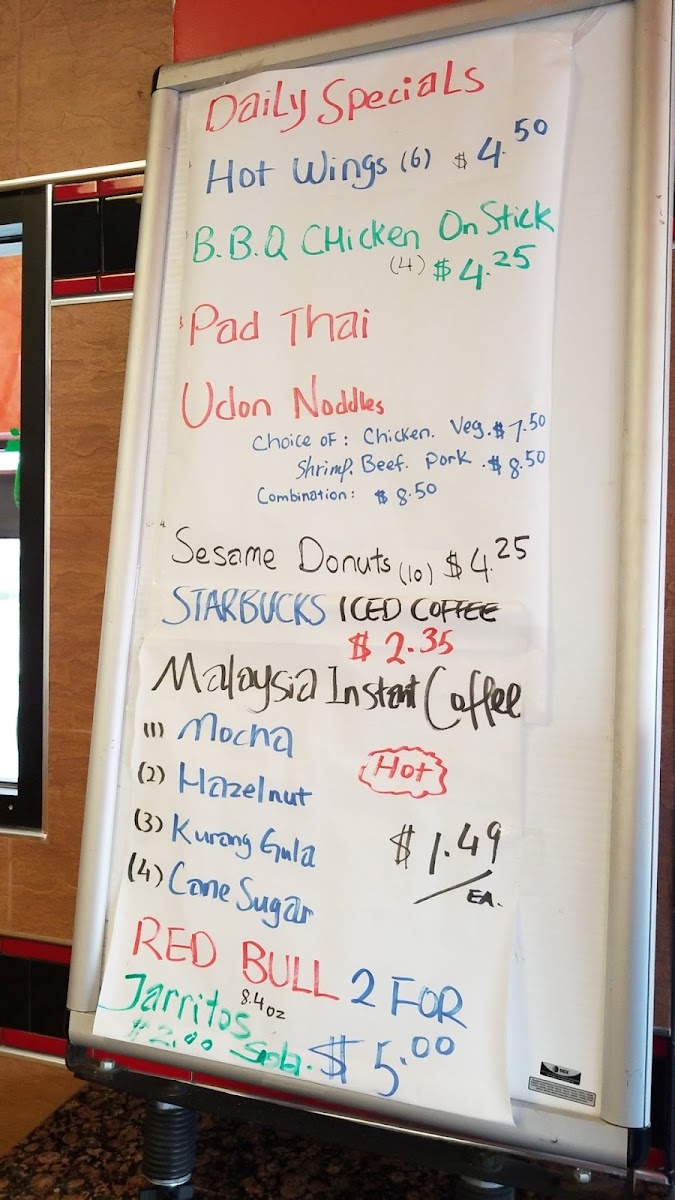 Daily Specials
Hot Wings (6) $4.50
B.B.Q Chicken On Stick
(4) $4.25
Pad Thai
Udon Noddles
Choice of: Chicken. Veg. $7.50
Shrimp. Beef. Pork. $8.50
Combination: $8.50
Sesame Donuts (10) $4.25
STARBUCKS ICED COFFEE
$2.35
Malaysia Instant Coffee
(1) Mocha
Hot
(2) Hazelnut
(3) Kurang Gula
$1.49
/EA.
(4) Cane Sugar
RED BULL 2 FOR
8.4oz
$5.00
Jarritos
$2.00 Soda.